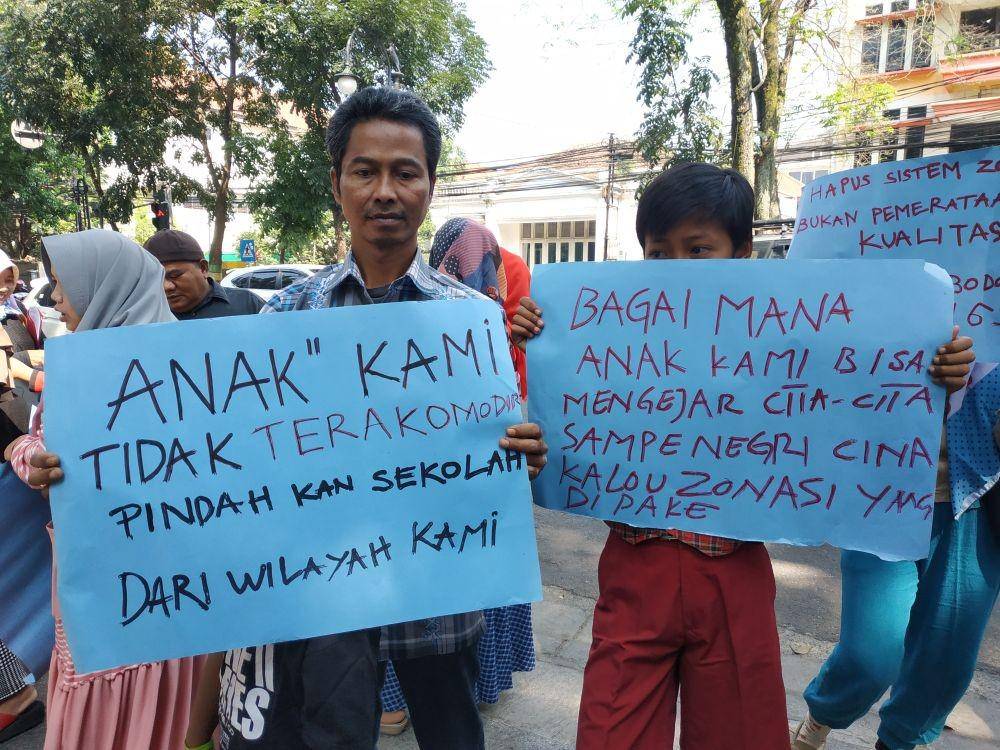 ANAK" KAMI
TIDAK TERAKOMODIR
PINDAH KAN SEKOLAH
DARI WILAYAH KAMI
BAGAI MANA
ANAK KAMI BISA
MENGEJAR CITA-CITA
SAMPE NEGRI CINA
KALOU ZONASI YANG
DI PAKE
HAPUS SISTEM
BUKAN
KUALITAS